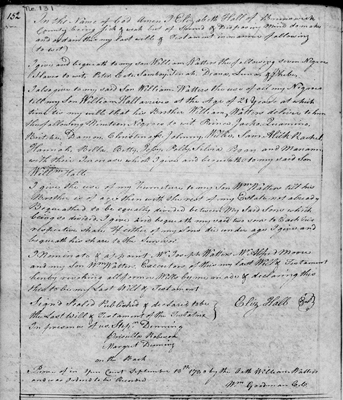 No. 131
152
In the Name of God Amen I Elizabeth Hall of Brunswick
County being Sick and weak but of Sound & disposing Mind do make
and ordain this my last will & Testament in manner following
to wit
I give and bequeath to my Son William Watters the following seven Negroes
Slaves to wit Peter Cato Sambo Dinah Diana and Phebe
I also give to my said Son William Watters the use of all my Negroes
till my Son William Hall arrives at the Age of 21 years at which
time to my will that his Brother William Watters deliver to him
these following Negroes to wit
Hannah Bella Betty Polly Silvia and
with their Increase which I give and bequeath to my said Son
Willm Hall
I give the use of my Furniture to my Son Wm Watters till his
Brother is of age then with the rest of my Estate not already
Bequeathed to be equally divided between My Said Sons which
being so divided I give and bequeath my said Sons to Each his
respective share If either of my Sons die under age I give and
bequeath his share to the Survivor
I Nominate & appoint Mr Joseph Watters Mr Alfred Moore
and my Son Wm Watters Executors of this my last Will & Testament
hereby revoking all former Wills by me made & declaring this
this to be my Last Will & Testament
Signd Seald Published & declard to be
the Last Will & Testament of the Testatrix
Eliz Hall
In presence of us Stepn Denning
Margret Denning
on the Back
Proven in open Court September by the Oath William Watters
and was ordered to be Recorded
Wm Goodman C.C.